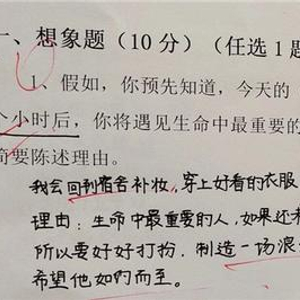 一、想象题（10分）（任选1题
1、假如，你预先知道，今天的
个小时后，你将遇见生命中最重要的
简要陈述理由。
我会回到宿舍补妆，穿上好看的衣服
理由：生命中最重要的人，如果还未
所以要好好打扮，制造一场浪
希望他如约而至。